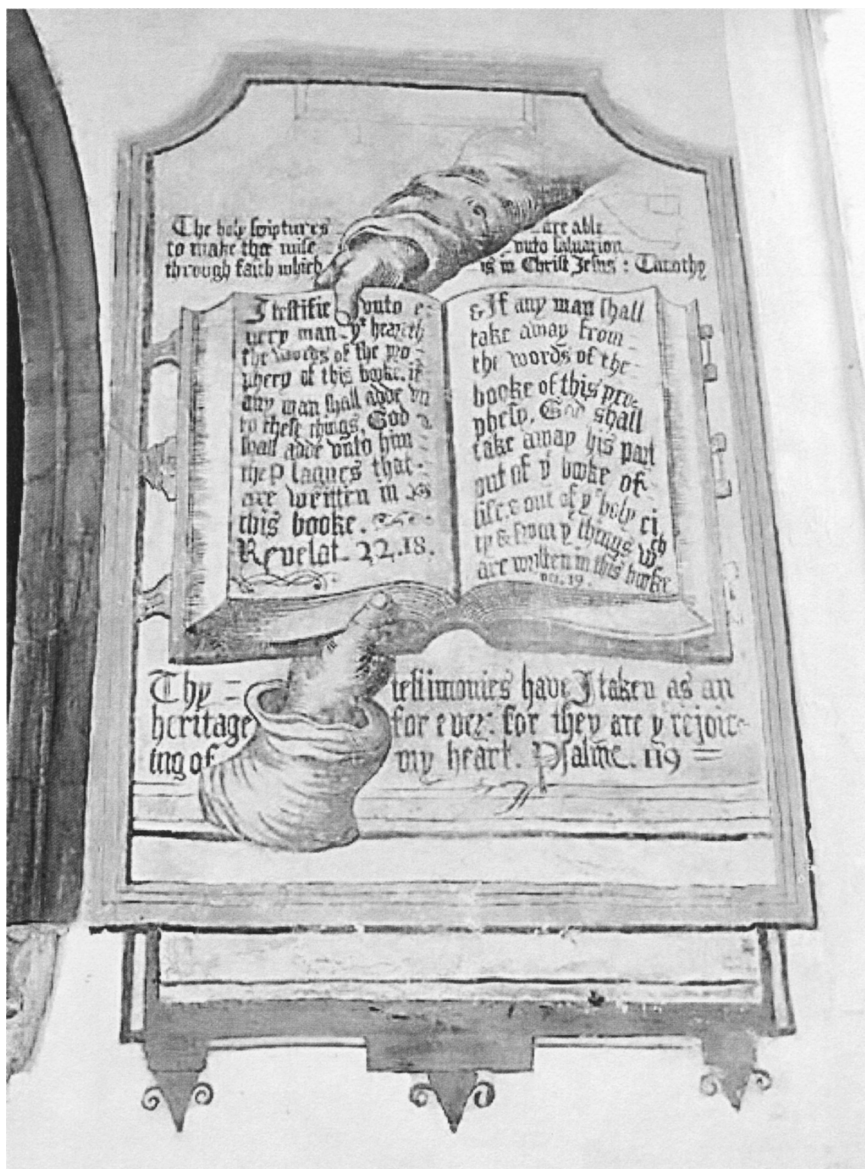 The holy scriptures are able
to make thee wise vnto saluation
through faith which is in Christ Jesus : Timothy
I testifie vnto e-
uery man yt heareth
the words of the pro-
phecy of this booke. if
any man shall adde vn
to these things, God
shall adde vnto him
the Plagues that
are written in
this booke.
Revelat. 22.18.
& If any man shall
take away from
the words of the
booke of this pro-
phesy, God shall
take away his part
out of ye booke of
life & out of ye holy ci
ty & from ye things wch
are written in this booke
ver. 19.
Thy = testimonies have I taken as an
heritage for ever: for they are ye rejoic-
ing of my heart. Psalme. 119 =